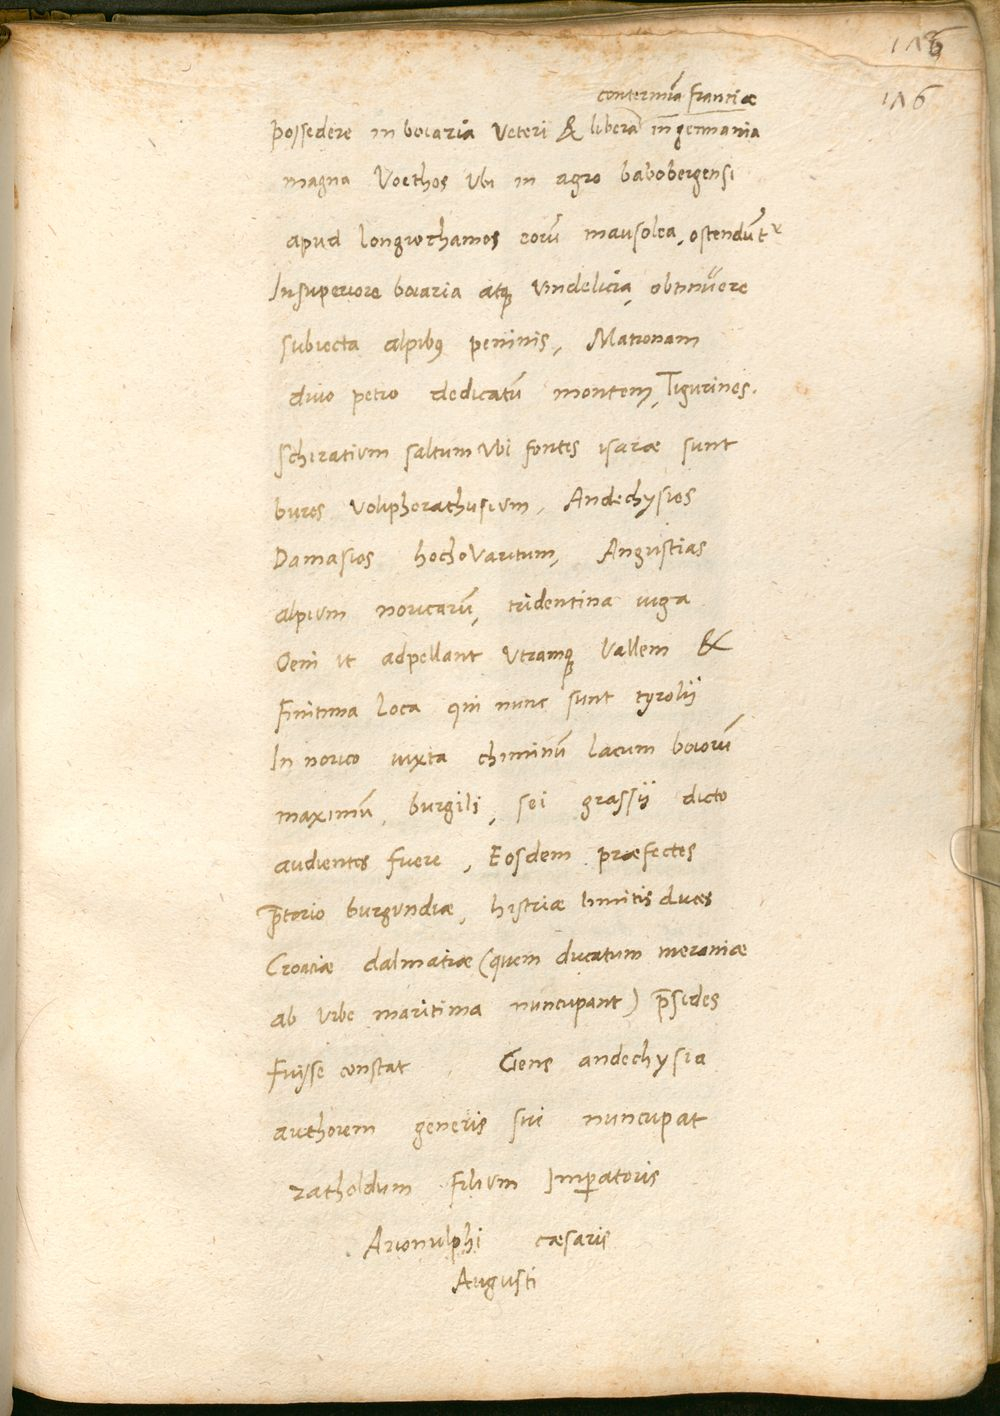 116
116
contermina Franciæ
possedere in boiaria Veteri & libera in germania
magna Voethos Vbi in agro babobergensi
apud longrothamos eorū mausolea, ostendūtr
In superiore boiaria atq Vindelicia, obtinuere
subiecta alpibus peninis, Matronam
diuo petro dedicatū montem, Tigurinos.
Scheratium saltum Vbi fontes isaræ sunt
bures Volipherathusium, Andechysios
Damasios hochoVartum, Angustias
alpium noricarū, tridentina iuga
Oeni vt adpellant Vtramq Vallem &
Finitima loca qui nunc sunt tyrolij
In norico iuxta chiminū lacum boiorū
maximū, burgili, sei grassij dicto
audientes fuere, Eosdem præfectos
p̄torio burgundiæ, histriæ limitis duces
Croatiæ dalmatiæ (quem ducatum meraniæ
ab Vrbe maritima nuncupant) p̄sides
Fuisse constat. Gens andechysia
authorem generis sui nuncupat
ratholdum filium Imperatoris
Arionulphi cæsaris
Augusti